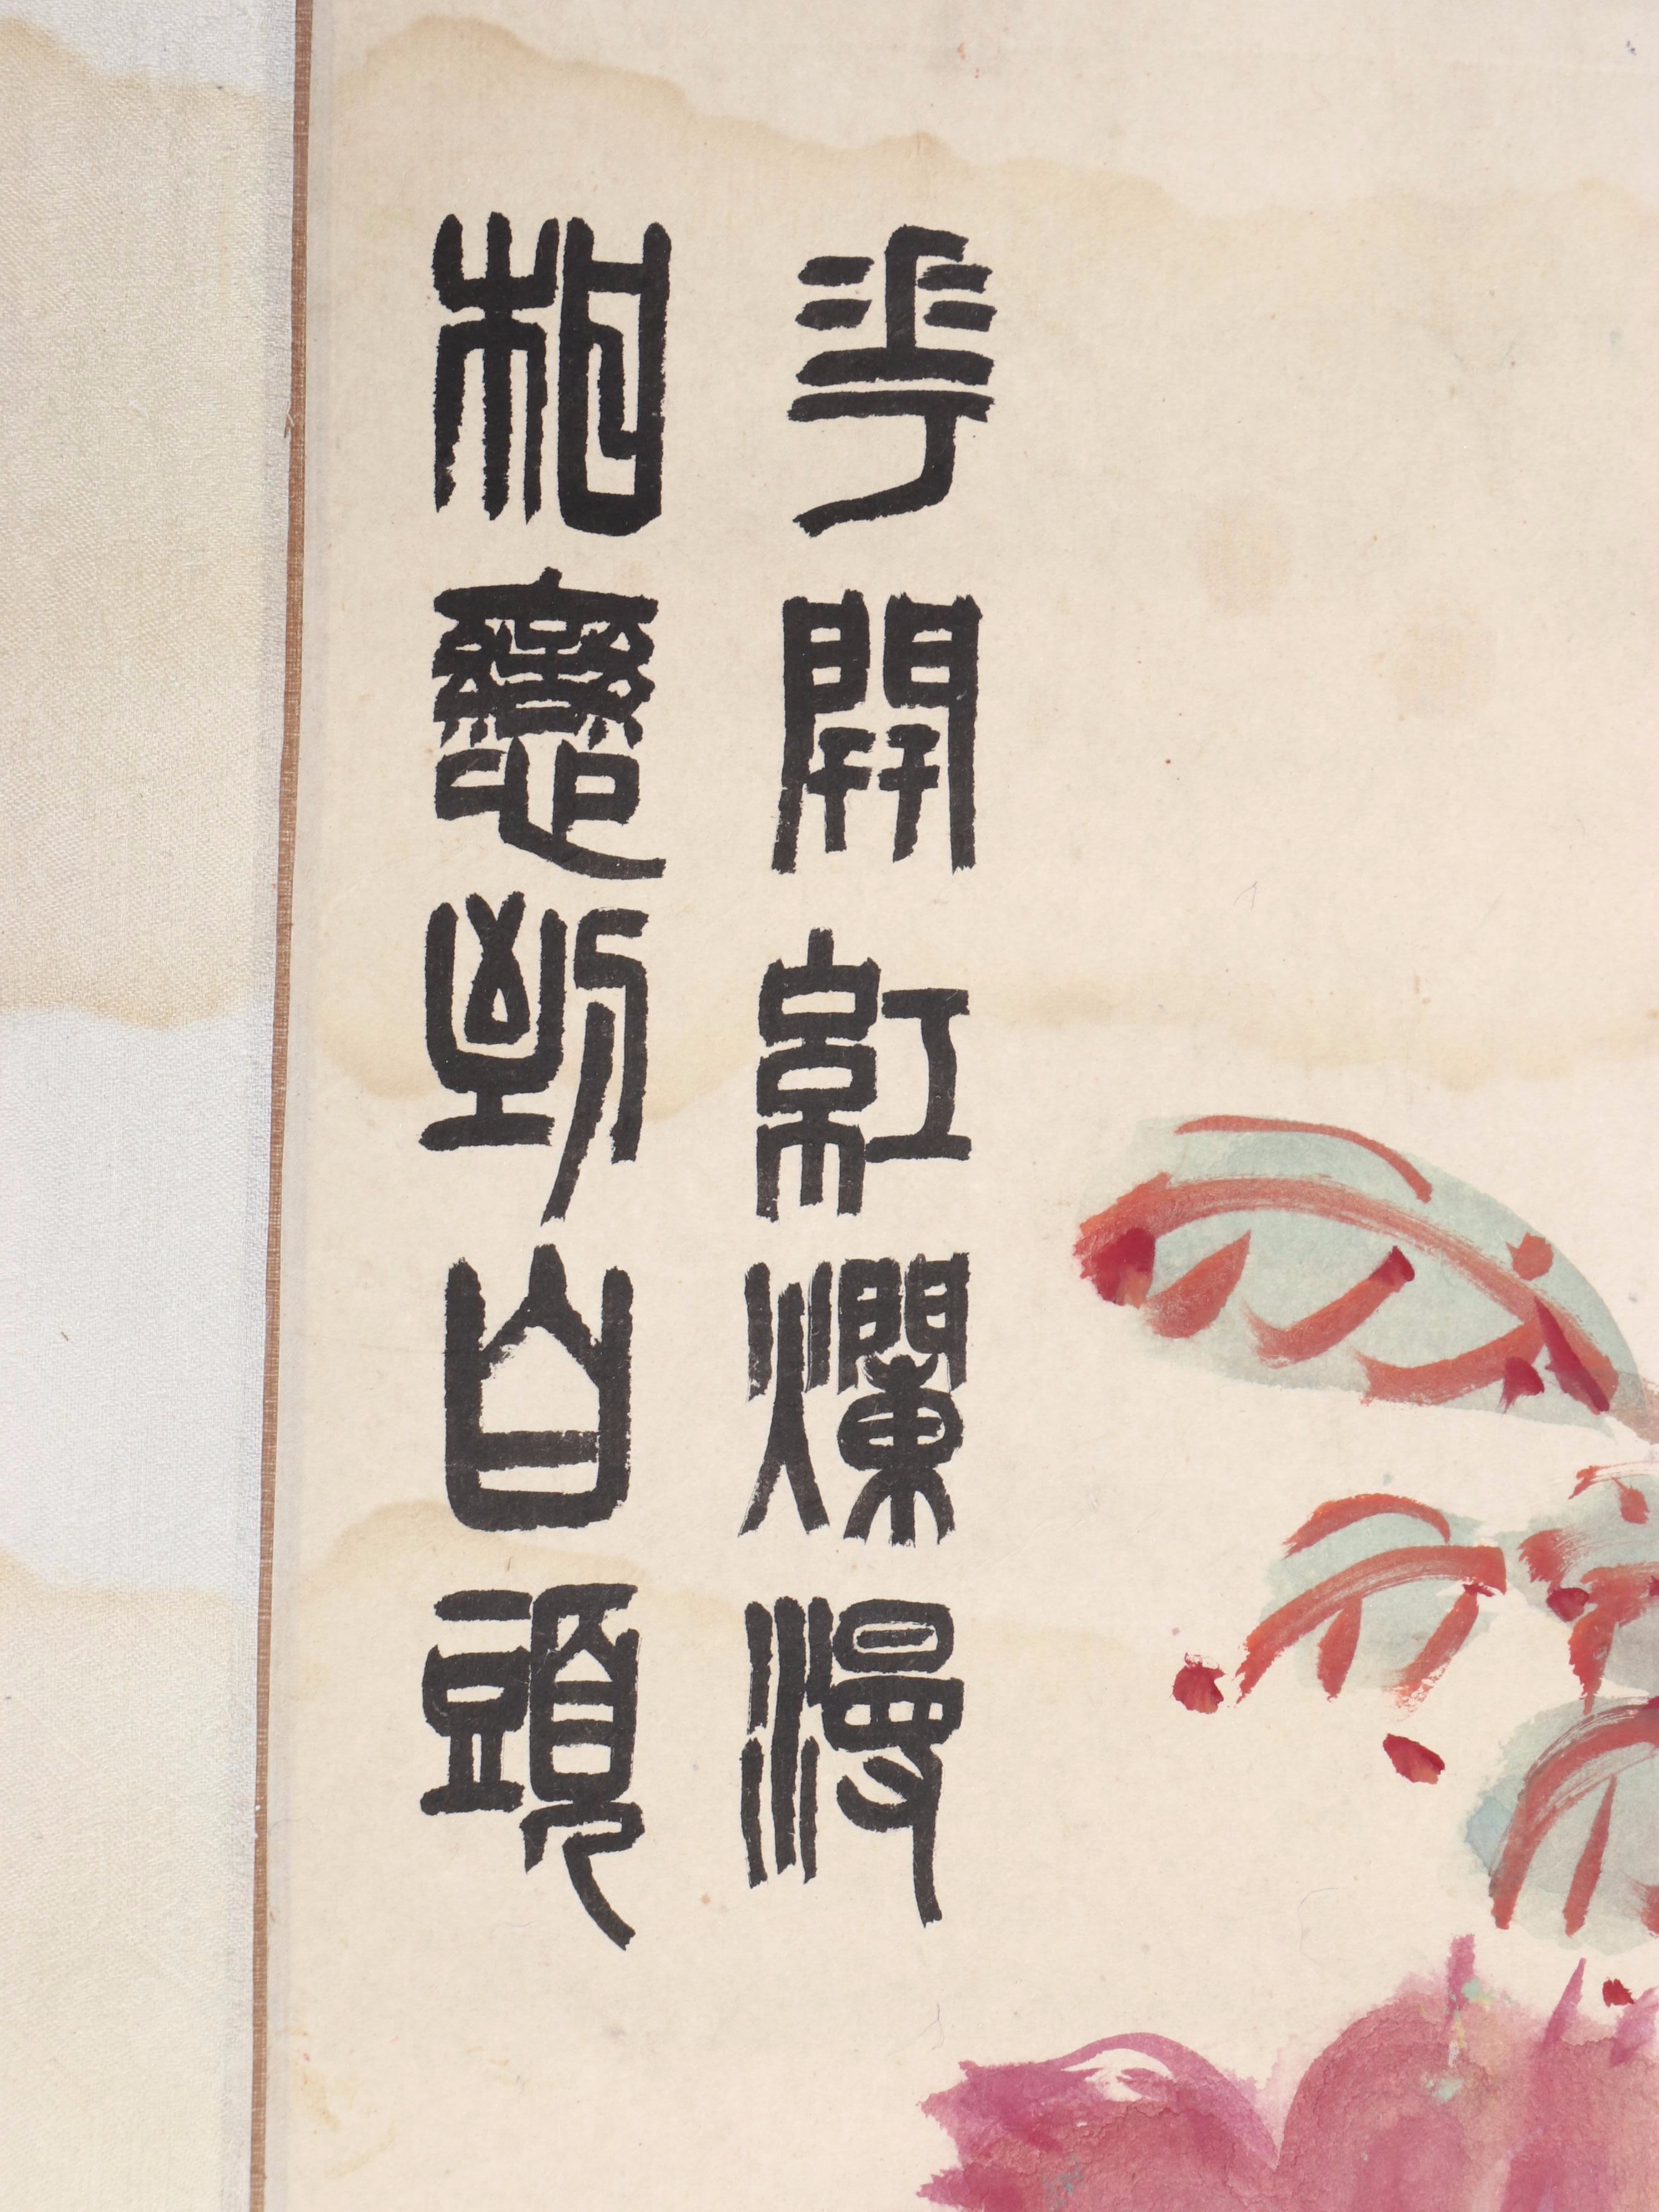 花開紅爛漫
相戀到白頭